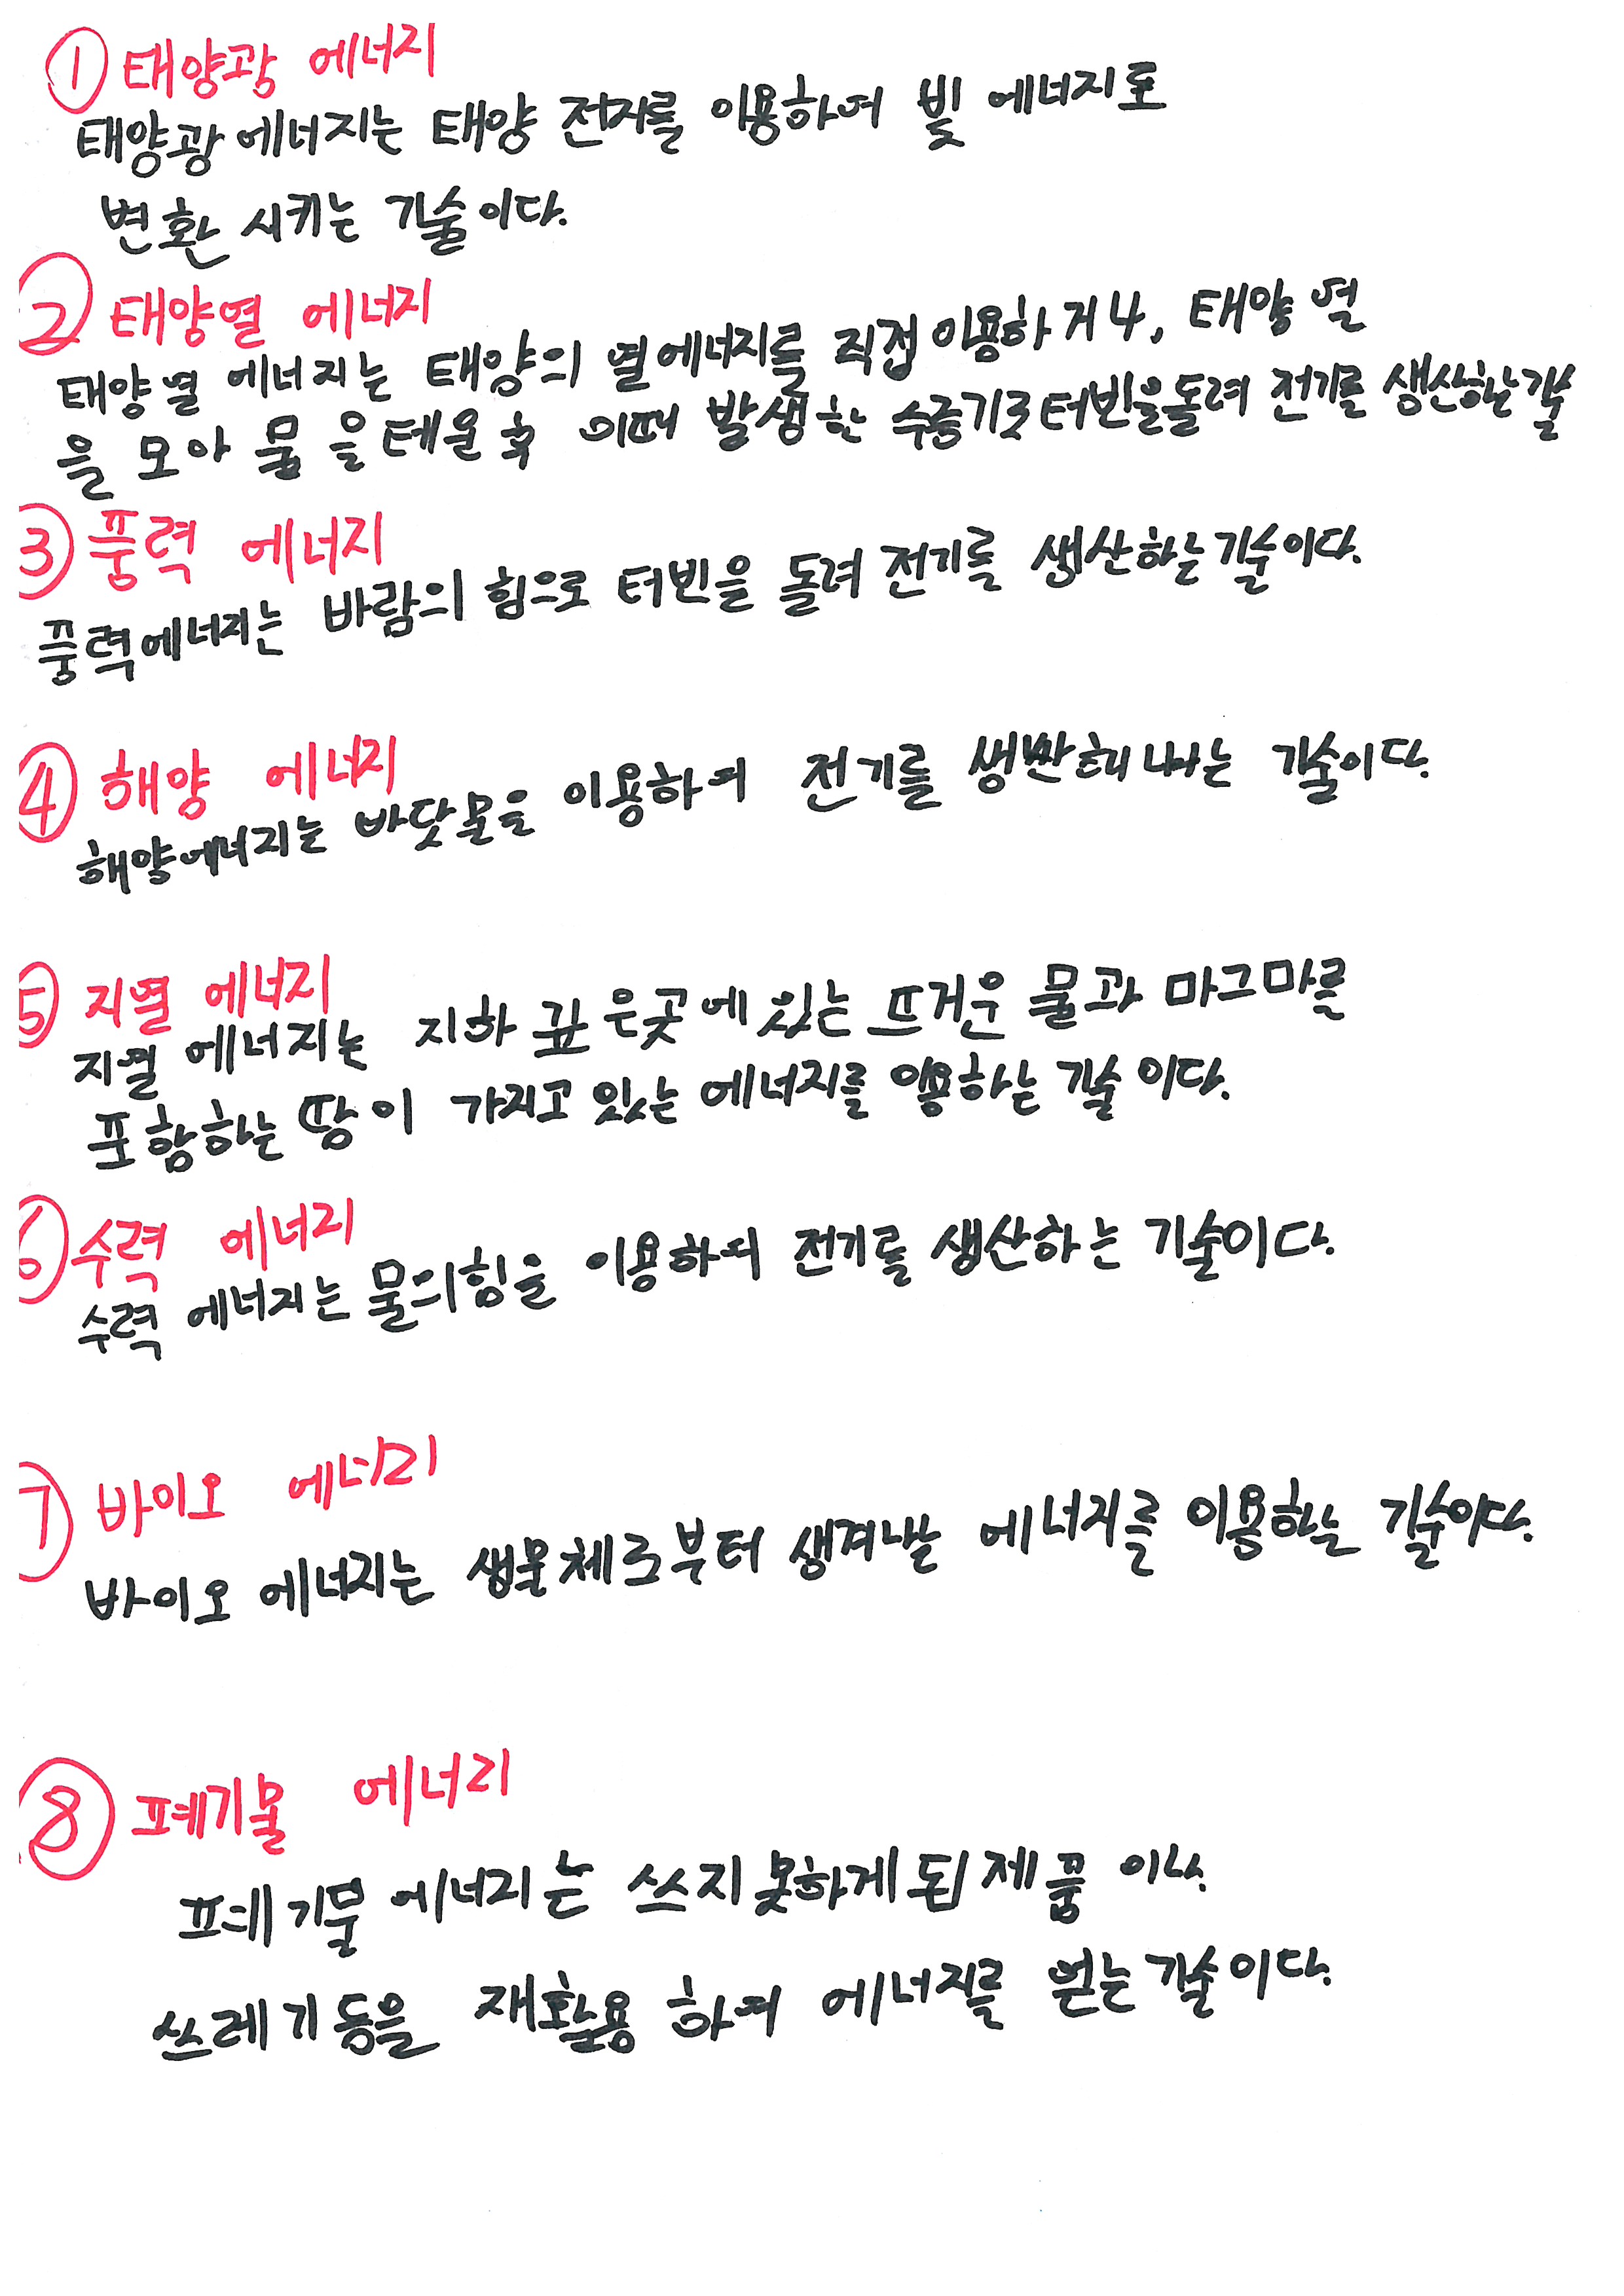 ① 태양광 에너지
태양광 에너지는 태양 전지를 이용하여 빛 에너지로
변환 시키는 기술이다.
② 태양열 에너지
태양열 에너지는 태양의 열에너지를 직접 이용하거나, 태양 열
을 모아 물 을 테운 후 이때 발생한 수증기로 터빈을 돌려 전기를 생산하는
③ 풍력 에너지
풍력에너지는 바람의 힘으로 터빈을 돌려 전기를 생산하는 기술이다.
④ 해양 에너지
해양에너지는 바닷물을 이용하여 전기를 기술이다.
⑤ 지열 에너지
지열 에너지는 지하 깊은곳에 있는 뜨거운 물과 마그마를
포함하는 땅이 가지고 있는 에너지를 이용하는 기술이다.
⑥ 수력 에너지
수력 에너지는 물의힘을 이용하여 전기를 생산하는 기술이다.
⑦ 바이오 에너지
바이오 에너지는 생물체로부터 생겨난 에너지를 이용하는 기술이다.
⑧ 폐기물 에너지
폐기물 에너지는 쓰지못하게된 제품 이나
쓰레기 등을 재활용 하여 에너지를 얻는 기술이다.